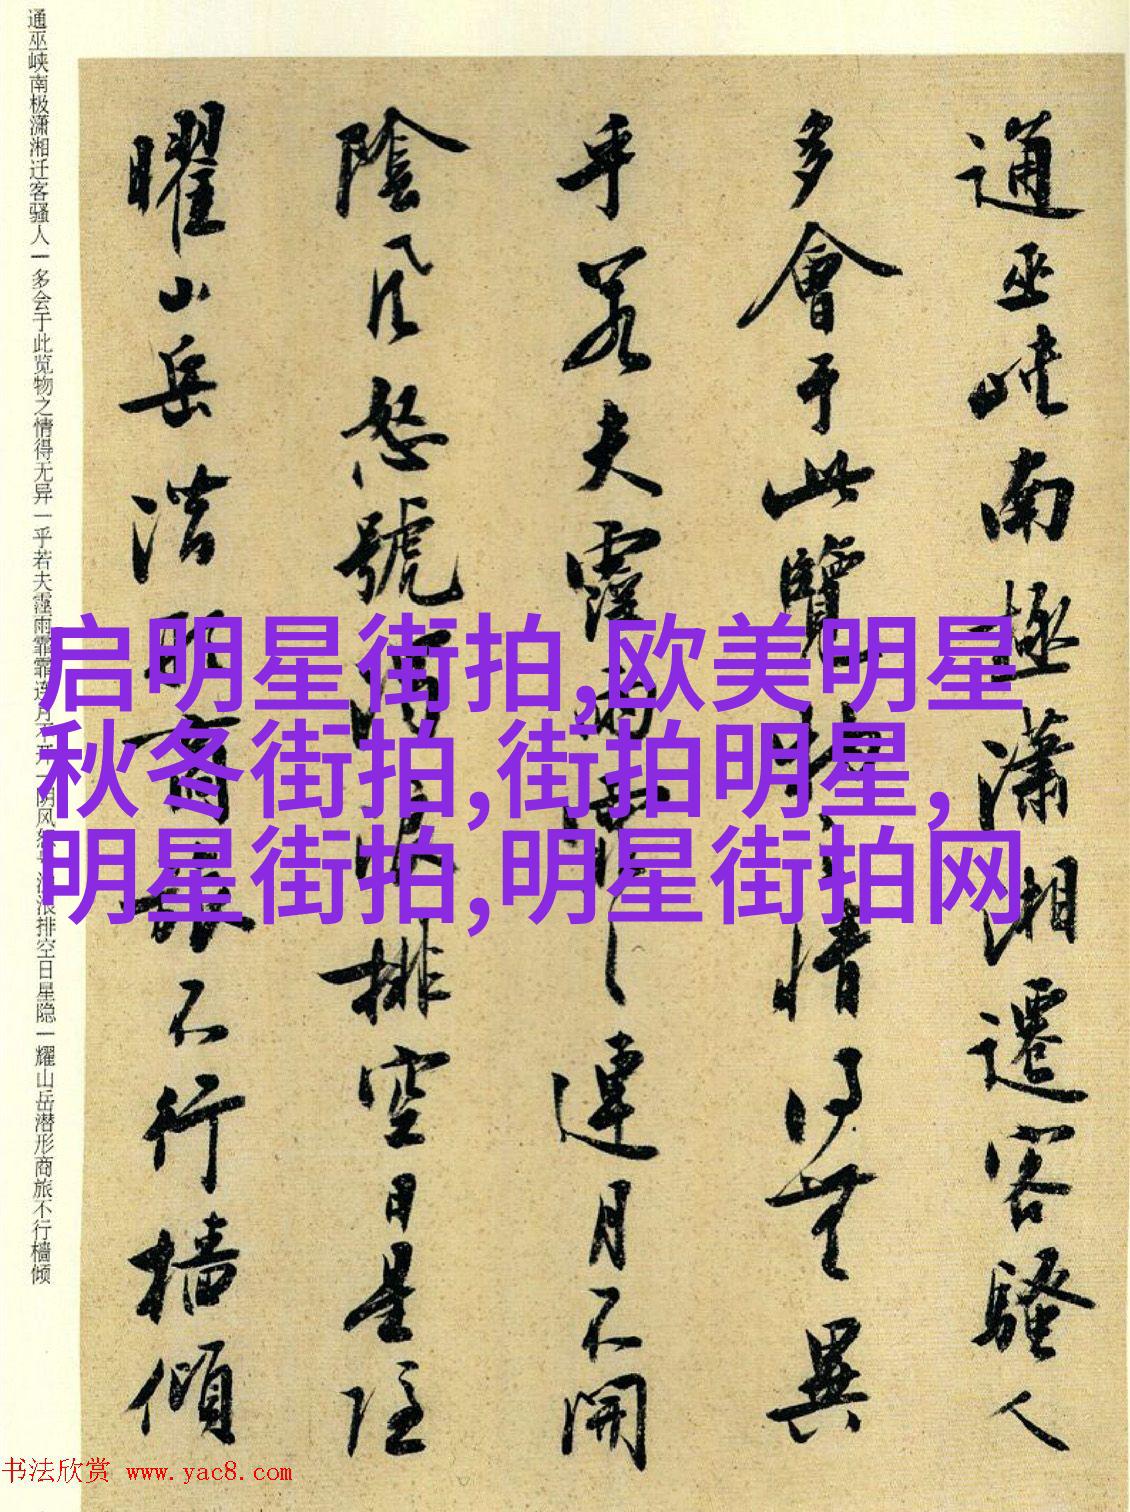 通巫峡南极潇湘迁客骚人一多会于此览物之情得无异一乎若夫霪雨霏霏连月不开一阴风怒号浊浪排空日星隐一耀山岳潜形商旅不行樯倾
通巫峽南極瀟湘遷客騷人
多會于此覽物之情得無異
乎若夫霪雨霏霏連月不開
陰風怒號濁浪排空日星隱
耀山岳潛形商旅不行檣傾
启明星街拍,欧美明星
秋冬街拍,街拍明星,
明星街拍,明星街拍网
书法欣赏 www.yac8.com